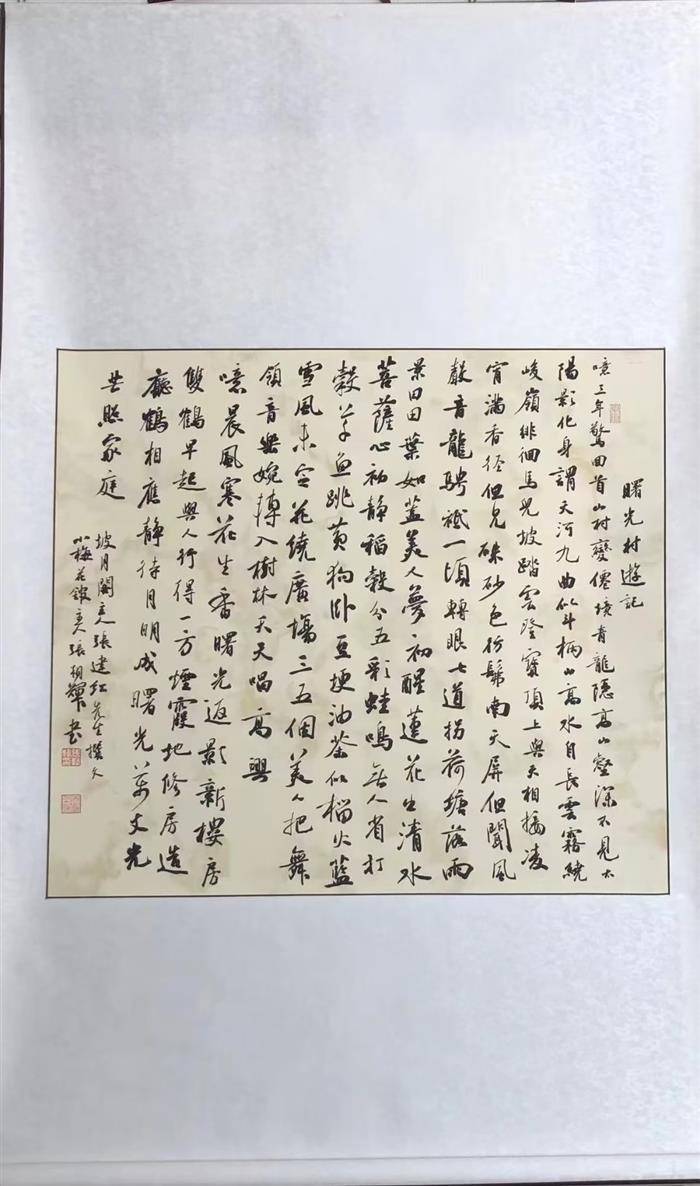 曙光村遊記
噫三年驚回首山村變僊境青龍隱高山壑深不見太
陽影化身謂天河九曲似斗柄山高水自長雲霧繞
峻嶺徘徊馬兒坡踏雲登寶頂上與天相接凌
宵滿香径但見硃砂色彷髴南天屏但聞風
嚴音龍騁祗一頃轉眼七道拐荷塘落雨
景田田葉如蓋美人夢初醒蓮花出清水
菩薩心初静稻穀分五彩蛙鳴無人省打
穀草魚跳黄狗卧豆埂油茶似榴火藍
雪風未定花繞廣場三五個美人把舞
領音樂婉轉入樹林天天唱高興
噫晨風寒花生香曙光返影新樓房
雙鶴早起與人行得一方煙霞地修房造
廳鶴相應静待月明成曙光萬丈光
芒照家庭
坡月閣主張建紅先生撰文
小梅花館主張朝輝书